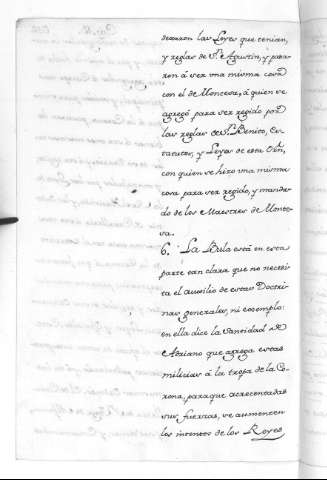 dexaron las Leyes que tenian,
y reglas de Sn. Agustin, y pasa-
ron á ser una misma cosa
con el de Montesa, á quien se
agregó para ser regido por
las reglas de Sn. Benito, Es-
tatutos, y Leyes de esta Orn,
con quien se hizo una misma
cosa para ser regido, y manda-
do de los Maestres de Monte-
sa.
6. La Bula está en esta
parte tan clara que no necesi-
ta el auxilio de estas Doctri-
nas generales, ni exemplo:
en ella dice la Santidad de
Adriano que agrega estas
milicias á la tropa de la Co-
rona, para que acrecentadas
sus fuerzas, se aumenten
los intentos de los Reyes